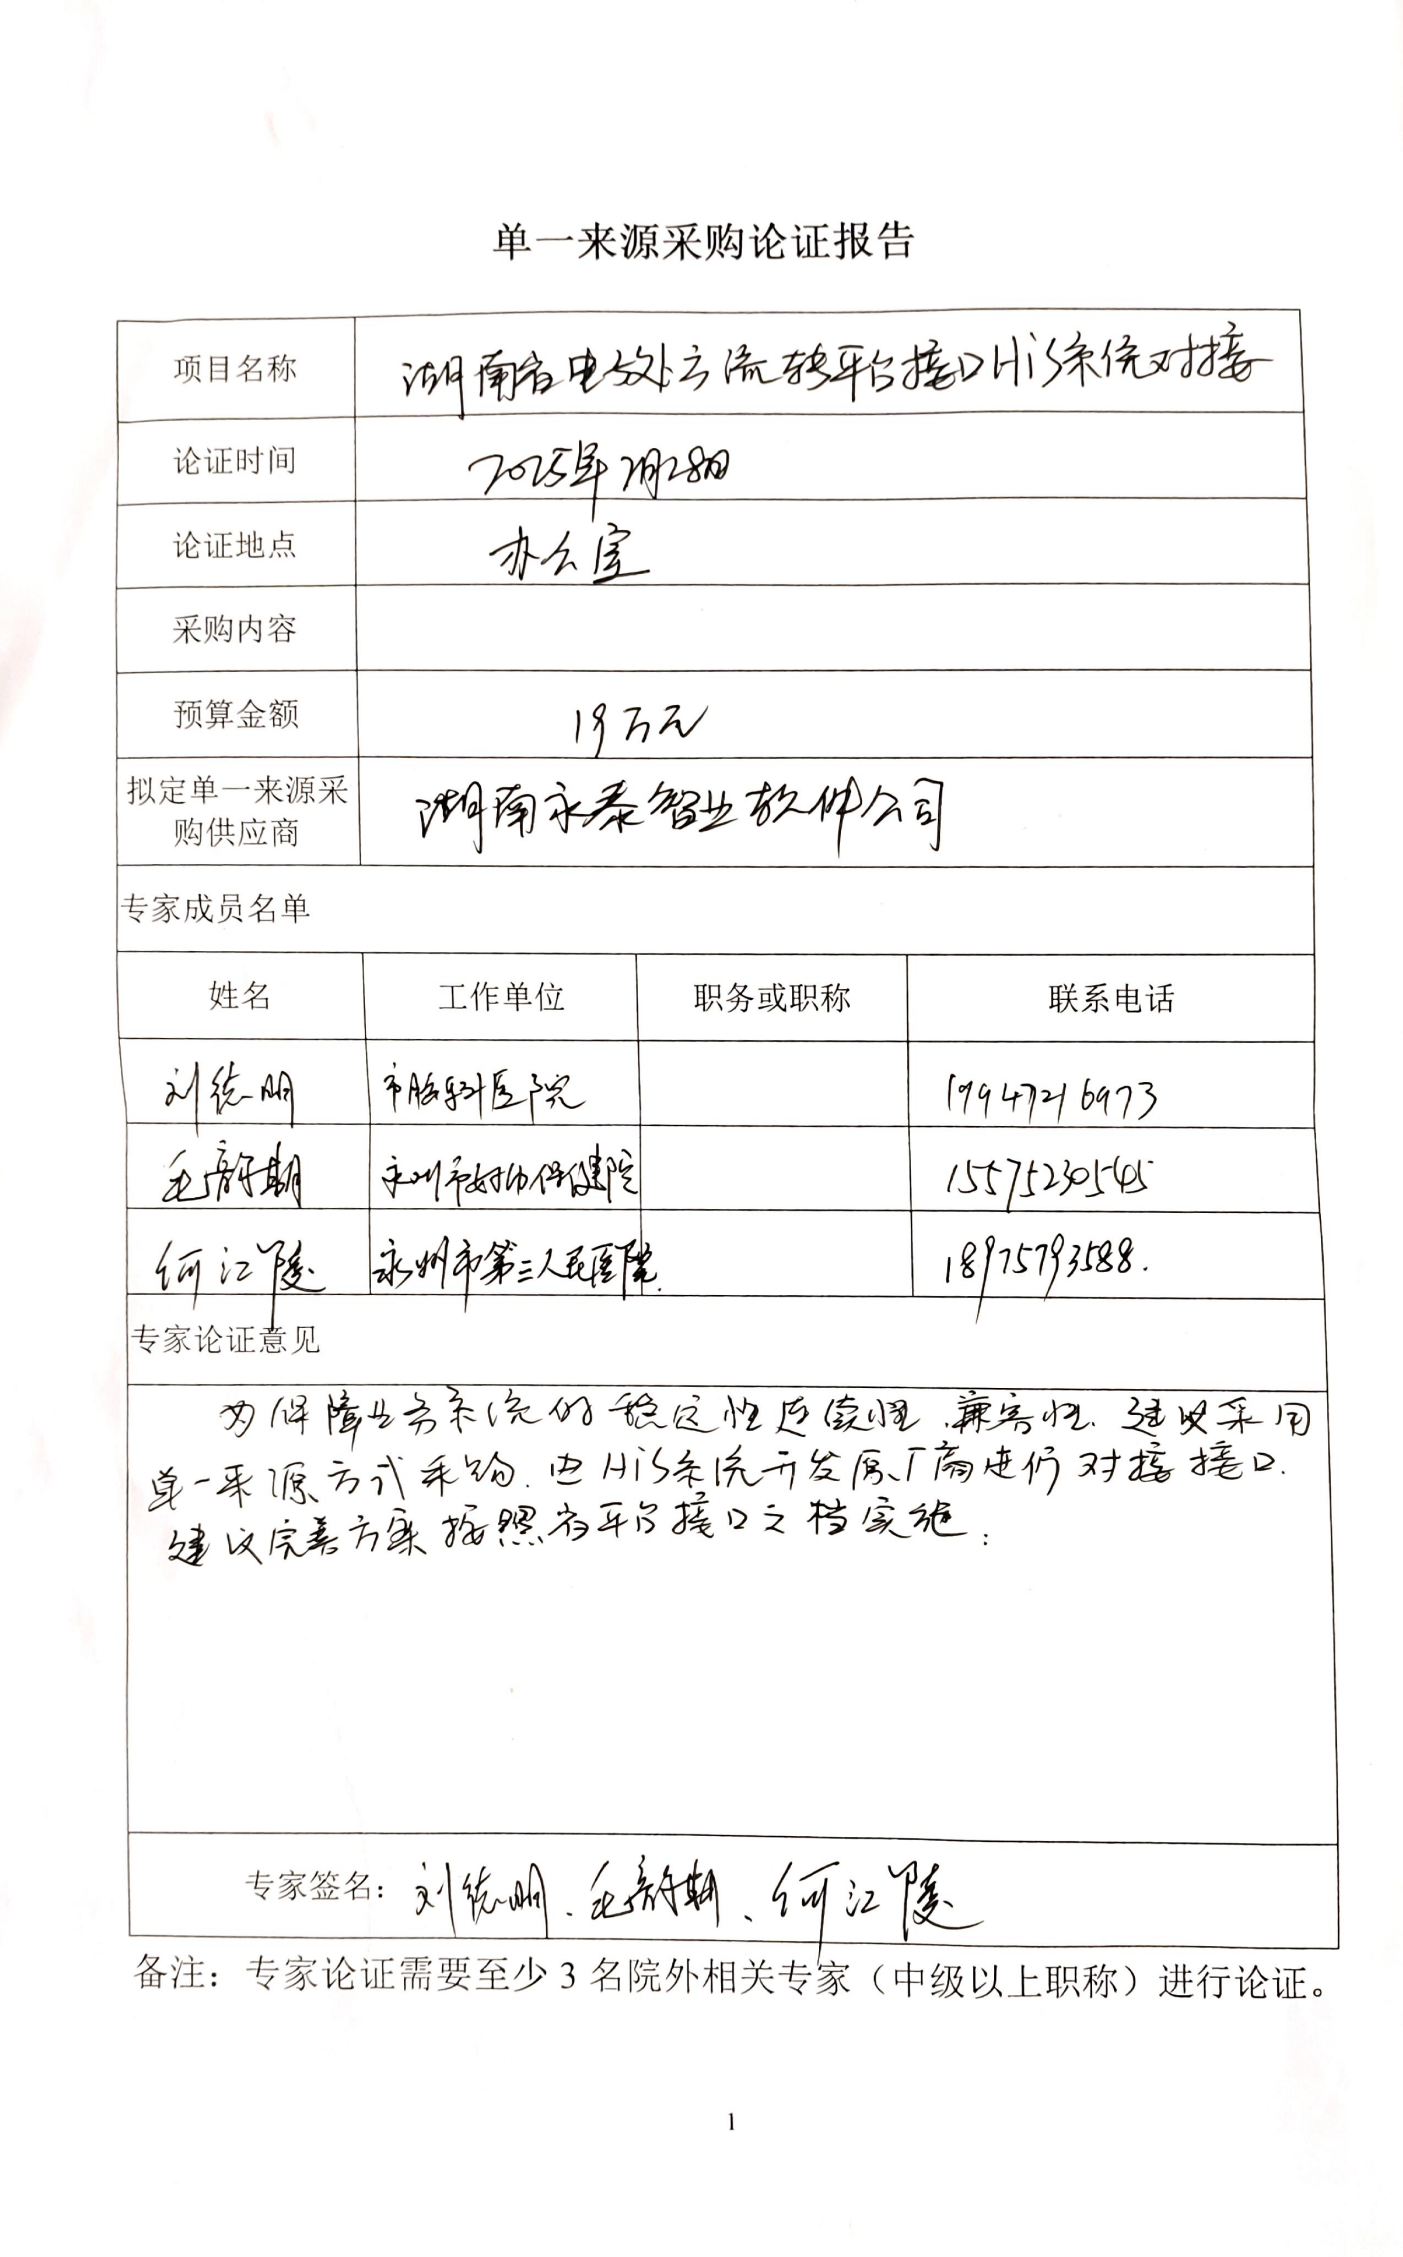 单一来源采购论证报告
项目名称 湖南省电子处方流转平台接口HiS系统对接
论证时间 2025年2月28日
论证地点 办公室
采购内容
预算金额 19万元
拟定单一来源采
购供应商 湖南永泰智业软件公司
专家成员名单
姓名 工作单位 职务或职称 联系电话
刘德明 市脑科医院 19947216973
毛韵期 永州市妇幼保健院 15575230545
何江陵 永州市第三人民医院 18975793588.
专家论证意见
为保障业务系统的稳定性连续性、兼容性、建议采用
单一来源方式采购.由HiS系统开发原厂商进行对接接口.
建议完善方案按照省平台接口文档实施:
专家签名: 刘德明、毛韵期、何江陵
备注:专家论证需要至少3名院外相关专家(中级以上职称)进行论证。
1